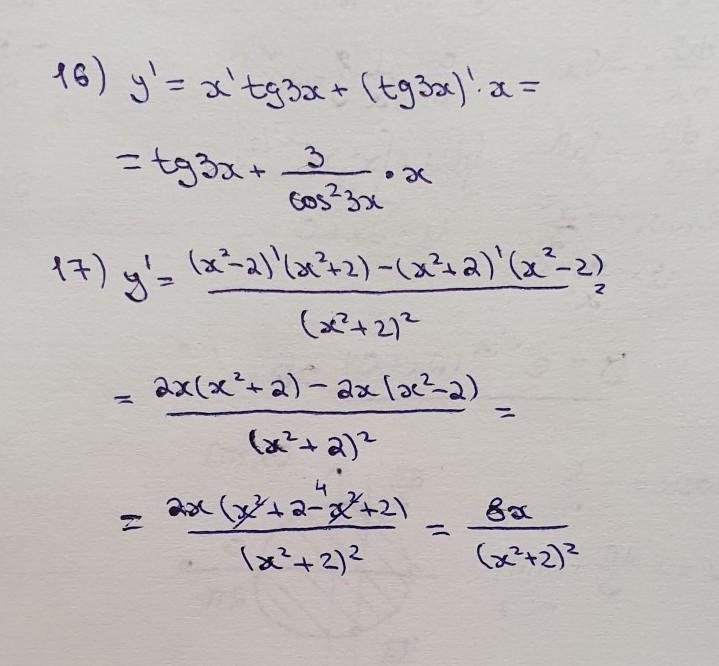 16) y' = x' tg3x + (tg3x)'· x =
= tg3x + 3/cos²3x · x
17) y' = ((x²-2)'(x²+2) - (x²+2)'(x²-2))/(x²+2)² =
= (2x(x²+2) - 2x(x²-2))/(x²+2)² =
= (2x(x²+2-x²+2))/(x²+2)² = 8x/(x²+2)²